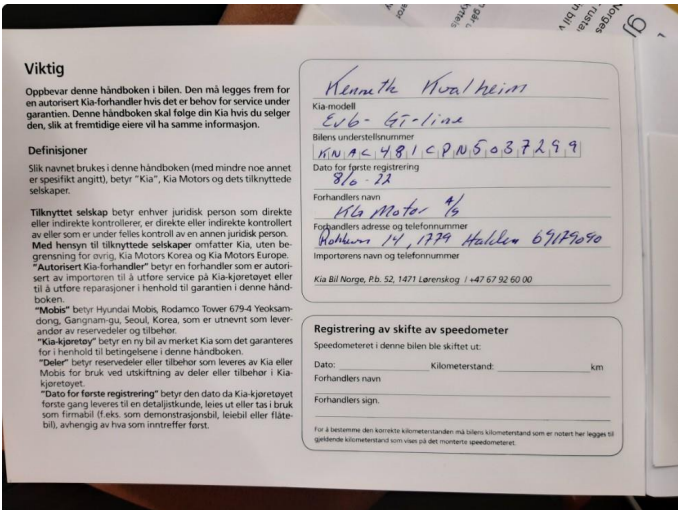 Viktig
Oppbevar denne håndboken i bilen. Den må legges frem for
en autorisert Kia-forhandler hvis det er behov for service under
garantien. Denne håndboken skal følge din Kia hvis du selger
den, slik at fremtidige eiere vil ha samme informasjon.
Definisjoner
Slik navnet brukes i denne håndboken (med mindre noe annet
er spesifikt angitt), betyr "Kia", Kia Motors og dets tilknyttede
selskaper.
Tilknyttet selskap betyr enhver juridisk person som direkte
eller indirekte kontrollerer, er direkte eller indirekte kontrollert
av eller som er under felles kontroll av en annen juridisk person.
Med hensyn til tilknyttede selskaper omfatter Kia, uten be-
grensning for øvrig, Kia Motors Korea og Kia Motors Europe.
"Autorisert Kia-forhandler" betyr en forhandler som er autori-
sert av importøren til å utføre service på Kia-kjøretøy eller
til å utføre reparasjoner i henhold til garantien i denne hånd-
boken.
"Mobis" betyr Hyundai Mobis, Rodamco Tower 679-4 Yeoksam-
dong, Gangnam-gu, Seoul, Korea, som er utnevnt som lever-
andør av reservedeler og tilbehør.
"Kia-kjøretøy" betyr en ny bil av merket Kia som det garanteres
for i henhold til betingelsene i denne håndboken.
"Deler" betyr reservedeler eller tilbehør som leveres av Kia eller
Mobis for bruk ved utskiftning av deler eller tilbehør i Kia-
kjøretøyet.
"Dato for første registrering" betyr den dato da Kia-kjøretøyet
første gang leveres til en detaljistkunde, leies ut eller tas i bruk
som firmabil (f.eks. som demonstrasjonsbil, leiebil eller flåte-
bil), avhengig av hva som inntreffer først.
Kenneth Kvalheim
Kia-modell
EV6- GT-line
Bilens understellsnummer
KNAC481CPN5037299
Dato for første registrering
8/6-22
Forhandlers navn
Kia Motor A/S
Forhandlers adresse og telefonnummer
14, 1779 Halden 69179090
Importørens navn og telefonnummer
Kia Bil Norge, P.b. 52, 1471 Lørenskog / +47 67 92 60 00
Registrering av skifte av speedometer
Speedometeret i denne bilen ble skiftet ut:
Dato: Kilometerstand: km
Forhandlers navn
Forhandlers sign.
For å bestemme den korrekte kilometerstanden må bilens kilometerstand som er notert her legges til
gjeldende kilometerstand som vises på det monterte speedometeret.